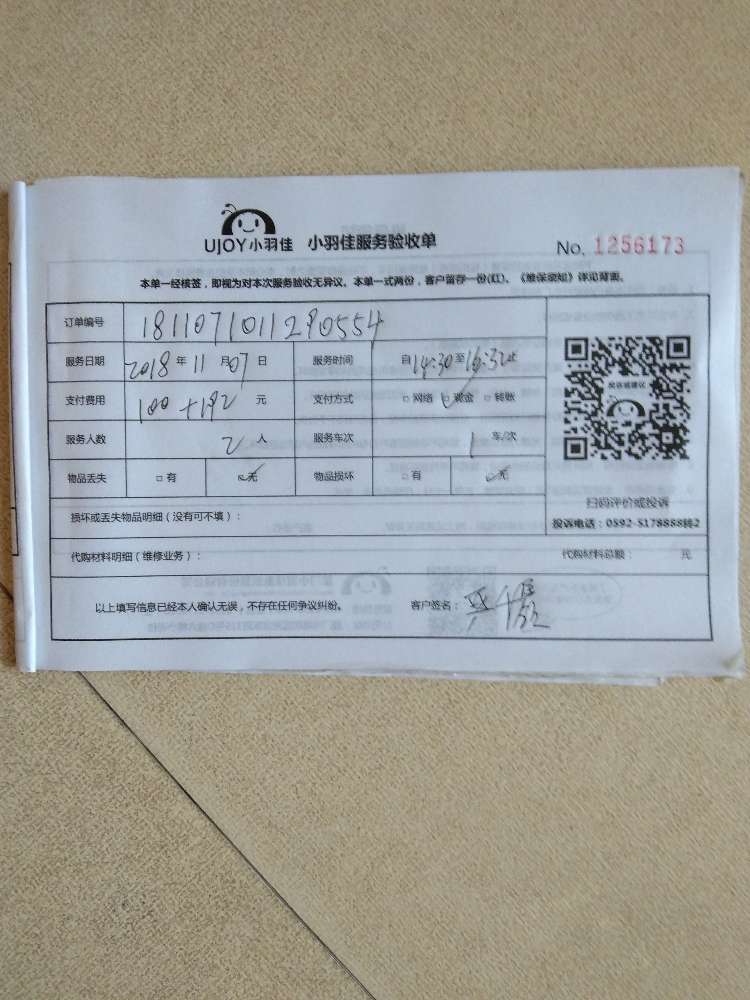 UJOY小羽佳 小羽佳服务验收单 No. 1256173
本单一经核签，即视为对本次服务验收无异议。本单一式两份，客户留存一份(红)。《维保须知》详见背面。
订单编号 1811071011290554
服务日期 2018年11月07日 服务时间 自14:30至16:32止
支付费用 100+192元 支付方式 □网络 □现金 □转账
服务人数 2人 服务车次 1车/次
物品丢失 □有 □无 物品损坏 □有 □无
扫码评价或投诉
损坏或丢失物品明细（没有可不填）： 投诉电话：0592-5178888转2
代购材料明细（维修业务）： 代购材料总额： 元
以上填写信息已经本人确认无误，不存在任何争议纠纷。 客户签名：